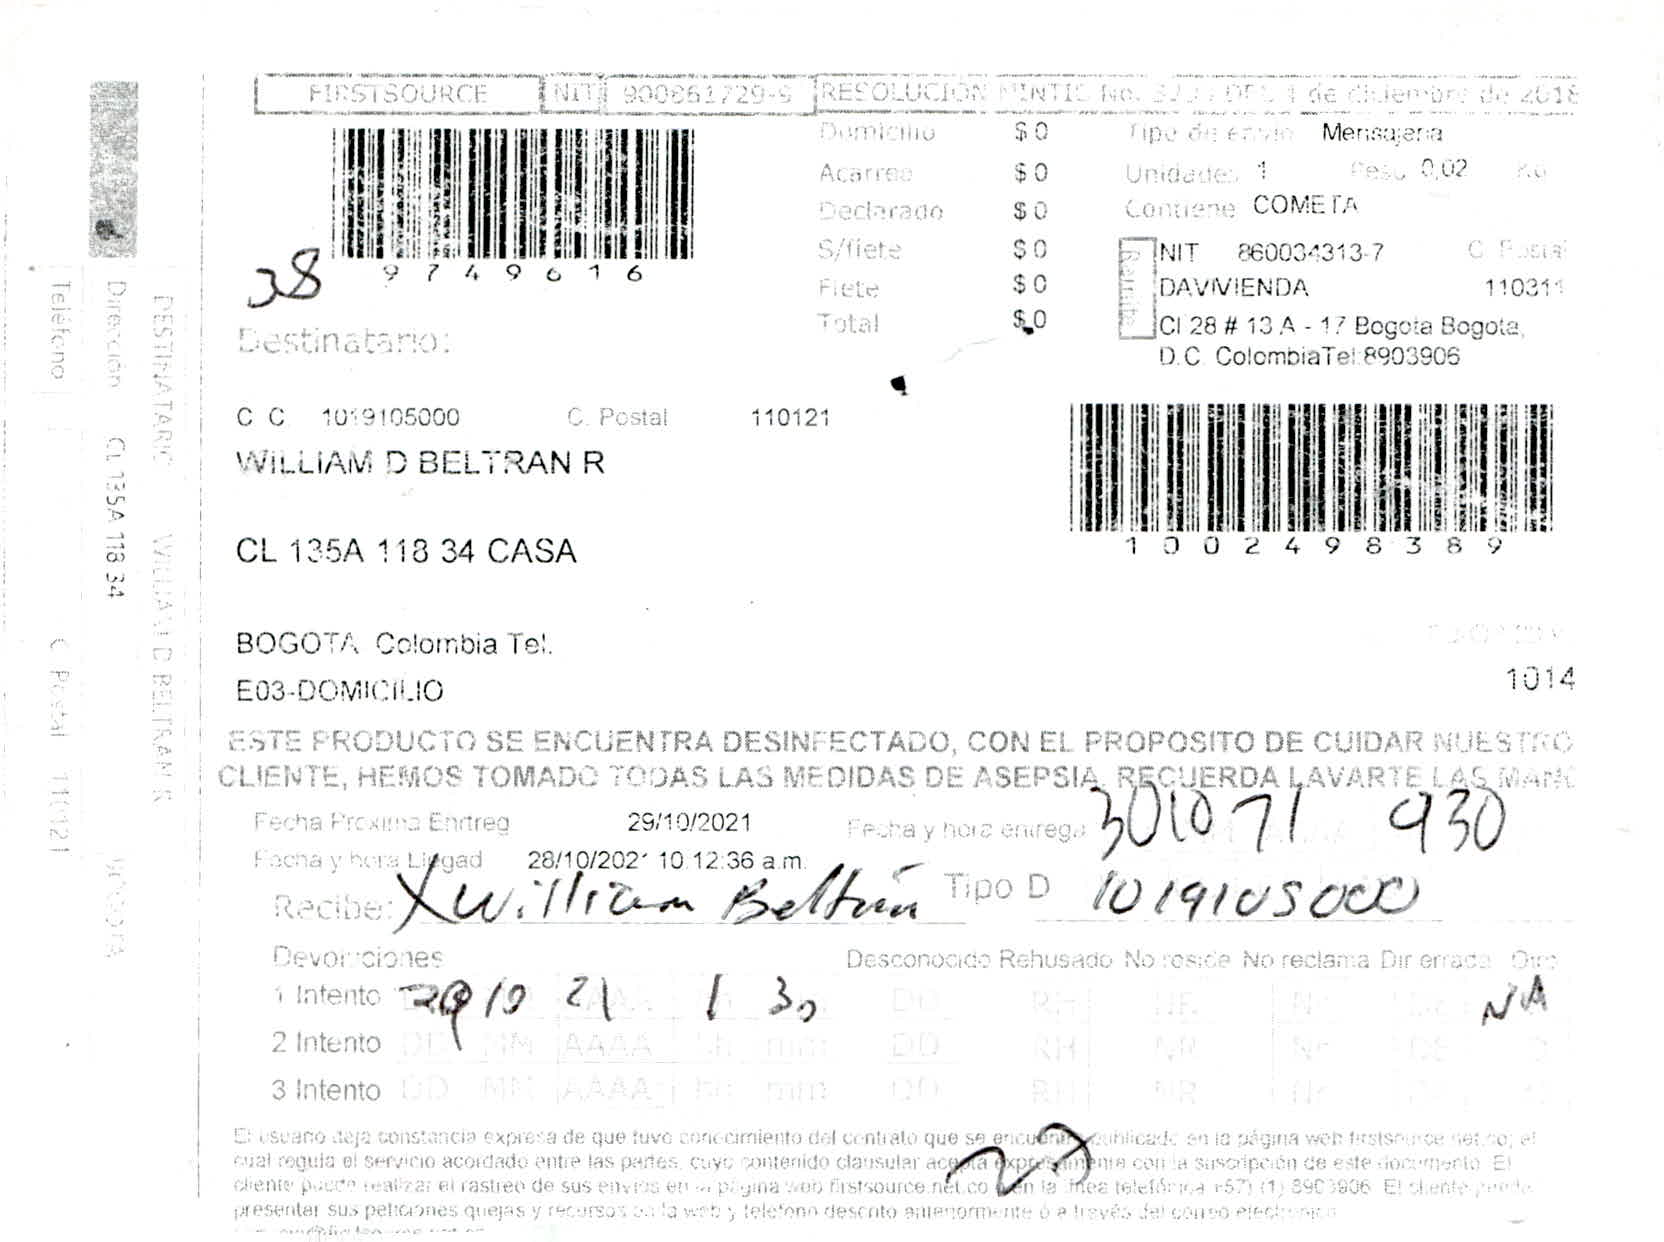 FIRSTSOURCE NIT 900861729-9 RESOLUCION MINTIC No. DEL de diciembre de 2018
9749616
38
Domicilio $ 0
Acarreo $ 0
Declarado $ 0
S/flete $ 0
Flete $ 0
Total $ 0
Tipo de envio Mensajeria
Unidades 1 Peso 0,02 KG
Contiene COMETA
Remite
NIT 860034313-7 C. Postal
DAVIVIENDA 110311
Cl 28 # 13 A - 17 Bogota Bogota,
D.C. Colombia Tel:8903906
1002498389
Destinatario:
C C 1019105000 C. Postal 110121
WILLIAM D BELTRAN R
CL 135A 118 34 CASA
BOGOTA Colombia Tel.
E03-DOMICILIO
1014
ESTE PRODUCTO SE ENCUENTRA DESINFECTADO, CON EL PROPOSITO DE CUIDAR NUESTRO
CLIENTE, HEMOS TOMADO TODAS LAS MEDIDAS DE ASEPSIA, RECUERDA LAVARTE LAS MANO
Fecha Proxima Enrtreg 29/10/2021 Fecha y hora entrega 301071 930
Fecha y hora Llegad 28/10/2021 10:12:36 a.m.
Recibe: X William Beltrán Tipo D 1019105000
Devoluciones Desconocido Rehusado No reside No reclama Dir errada Otro
1 Intento 29 10 21 1 30 DD RH NR Nr DE NA
2 Intento DD MM AAAA hh mm DD RH NR Nr DE
3 Intento DD MM AAAA hh mm DD RH NR Nr
El usuario deja constancia expresa de que tuvo conocimiento del contrato que se encuentra publicado en la página web firstsource.net.co; el
cual regula el servicio acordado entre las partes, cuyo contenido clausular acepta expresamente con la suscripción de este documento. El
cliente puede realizar el rastreo de sus envios en la página web firstsource.net.co o en la línea telefónica +57) (1) 8903906. El cliente puede
presentar sus peticiones quejas y recursos en la web y telefono descrito anteriormente ó a través del correo electronico
DESTINATARIO WILLIAM D BELTRAN R
Dirección CL 135A 118 34 BOGOTA
Teléfono C. Postal 110121